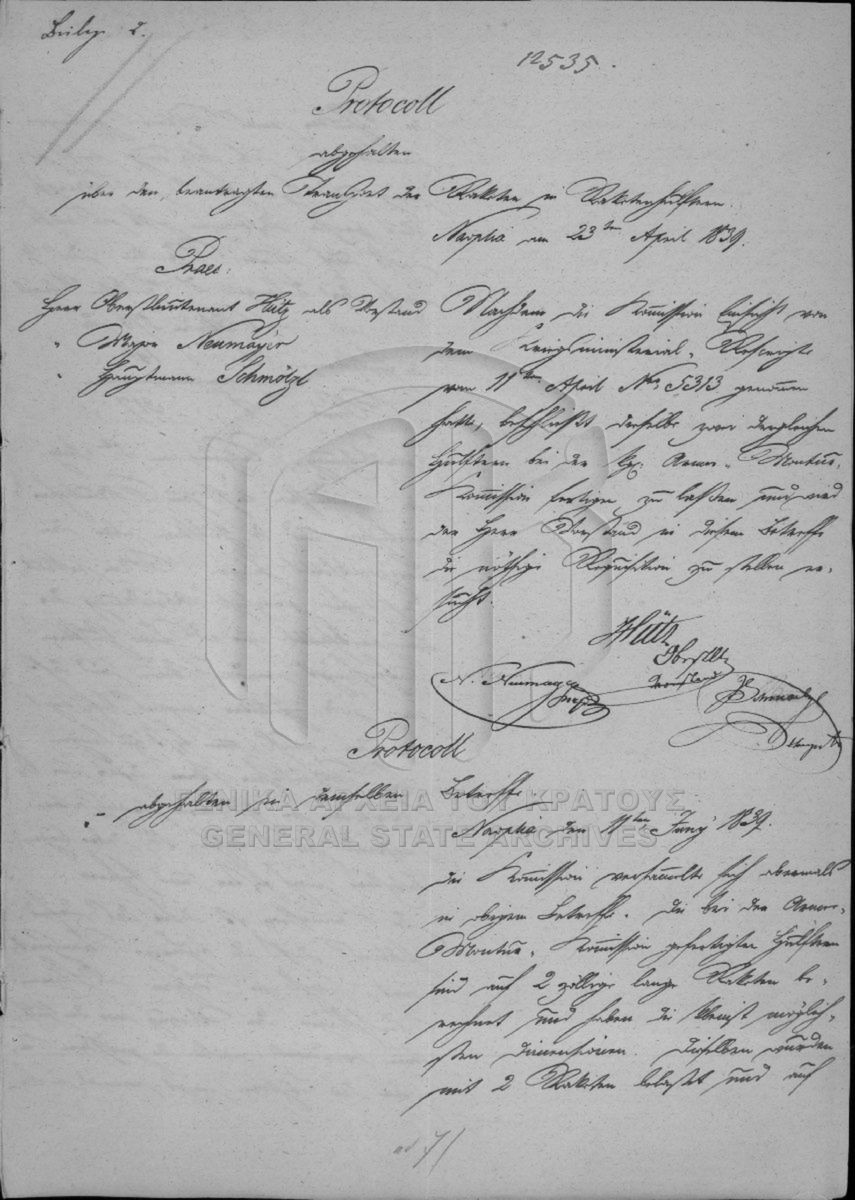 Beilage 2.
12535.
Protocoll
abgehalten
über den beantragten Transport der Raketen in Raketenhülftern.
Nauplia am 23ten April 1839.
Praes:
Herr Oberstlieutenant Hütz als Vorstand
" Major Neumayer
" Hauptmann Schmölzl
Nachdem die Kommission Einsicht von
dem Kriegsministerial-Rescripte
vom 11ten April No 5313 genommen
hatte, beschließt dieselbe zwei dergleichen
Hülftern bei der kg: Armee-Montur-
Kommission fertigen zu laßen und wird
der Herr Vorstand in diesem Betreffe
die nöthige Requisition zu stellen er-
sucht.
Hütz
Obstlt
Vorstand
N. Neumayer
Major
Schmoelzl
Hauptm
Protocoll
abgehalten in demselben Betreffe.
Nauplia den 11ten Juny 1839.
Die Kommission versammelte sich abermals
in obigem Betreffe. Die bei der Armee-
Montur-Kommission gefertigten Hülftern
sind auf 2 zöllige lange Raketen be-
rechnet und haben die kleinst möglich-
sten Dimensionen. Dieselben wurden
mit 2 Raketen belastet und auf
ad 71
ΓΕΝΙΚΑ ΑΡΧΕΙΑ ΤΟΥ ΚΡΑΤΟΥΣ
GENERAL STATE ARCHIVES